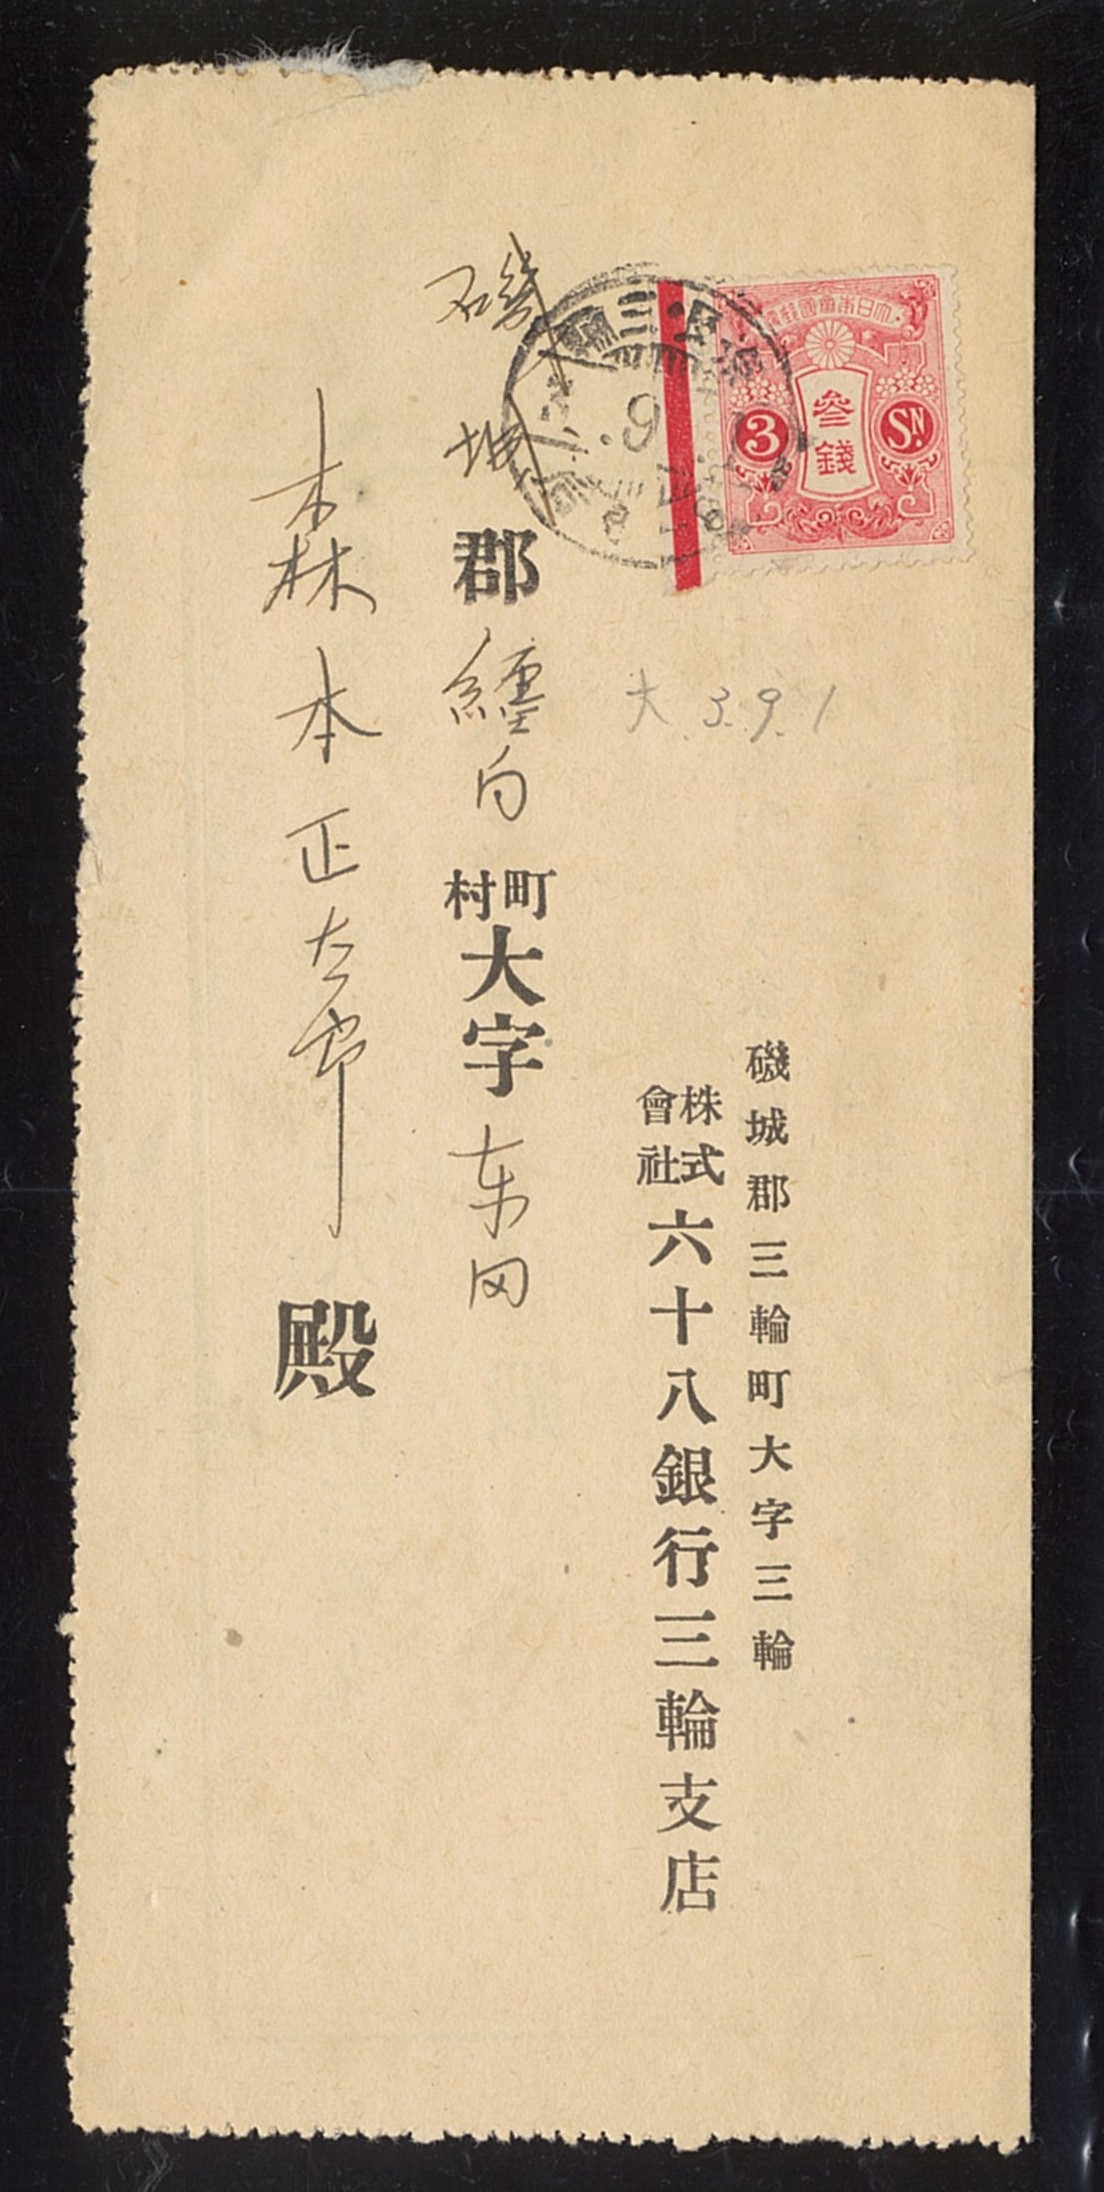 大日本帝國郵便
参錢
3
SN
大.3.9.1
磯城郡三輪町大字三輪
株式會社六十八銀行三輪支店
磯城郡纏向町村大字東田
森本正太郎殿